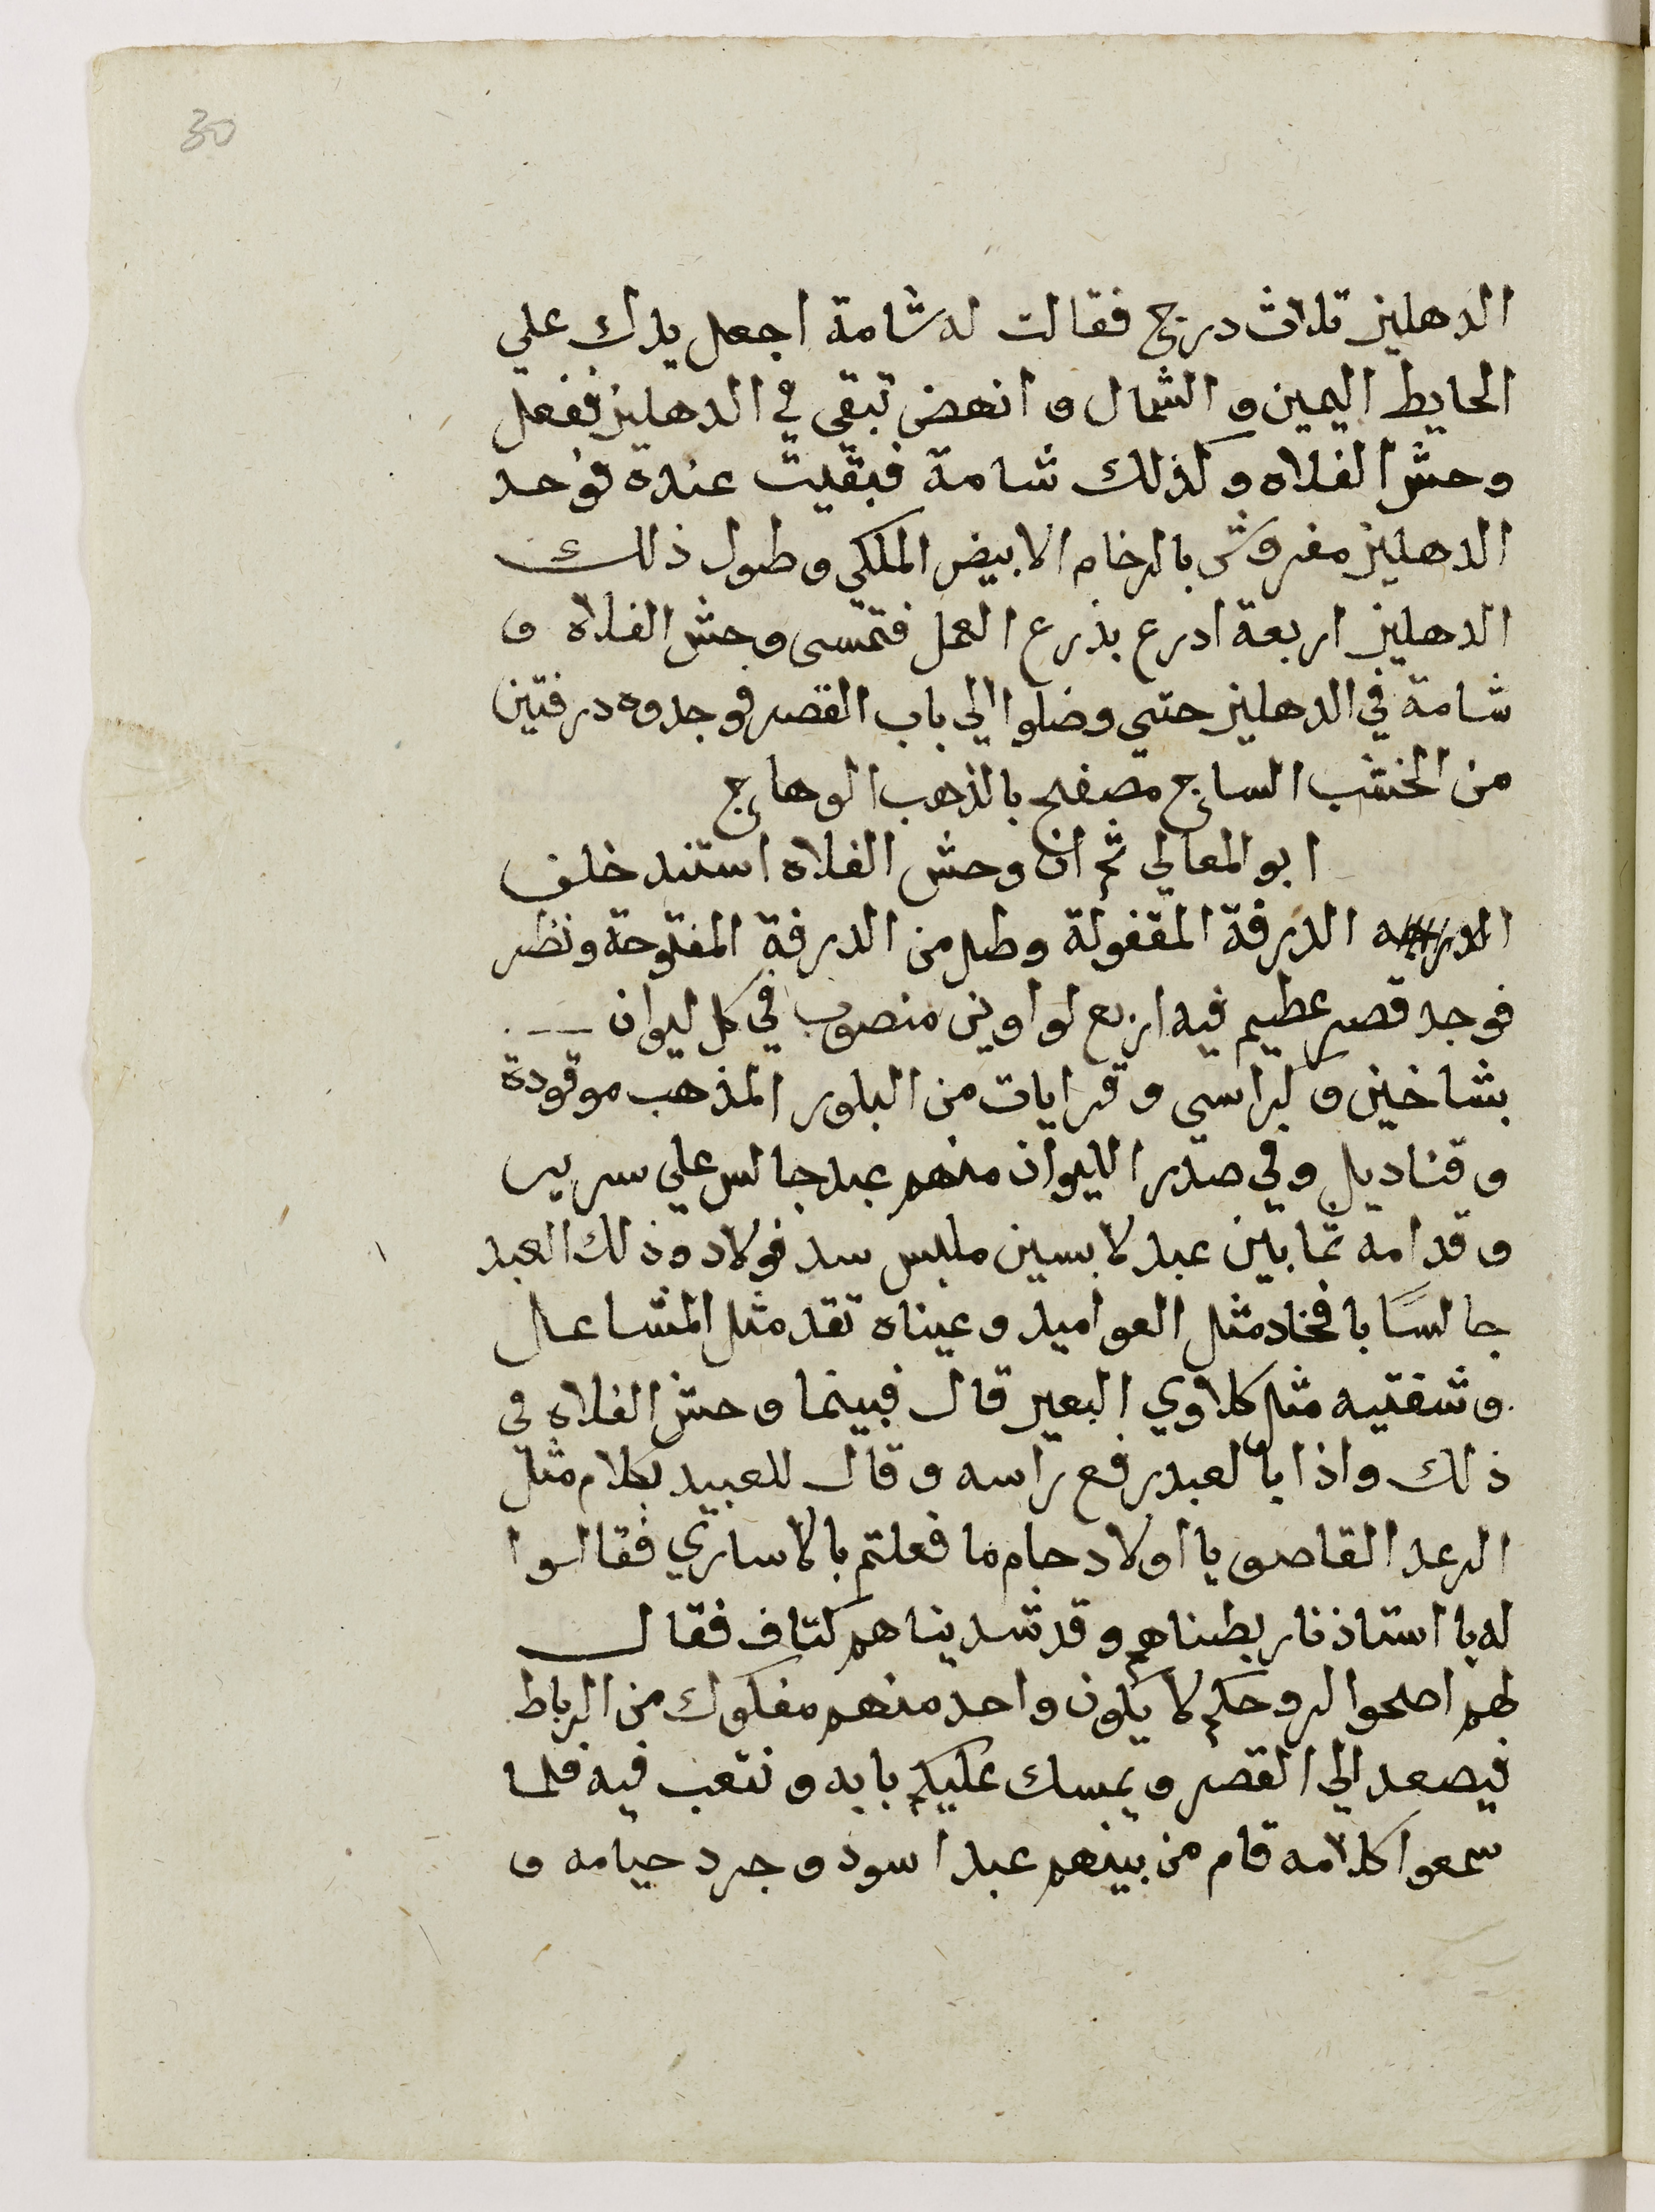 30
الدهليز تلات درج فقالت له شامة اجعل يدك علي
الحايط اليمين و الشمال و انهض تبقي في الدهليز ففعل
وحش الفلاه و كذلك شامة فبقيت عنده فوجد
الدهليز مفروش بالرخام الابيض الملكي و طول ذلك
الدهليز اربعة ادرع بذرع العمل فتمسى وحش الفلاه و
شامة في الدهليز حتي وصلوا الي باب القصر فوجدوه درفتين
من الخشب الساج مصفح بالذهب الوهاج
ابو المعالي ثم ان وحش الفلاه استند خلف
الدرفة المقفولة وطل من الدرفة المفتوحة ونظر
فوجد قصر عظيم فيه اربع لواوين منصوب في كل ليوان
بشاخين و كراسي و قرايات من البلور المذهب موقودة
و قناديل و في صدر الليوان منهم عبد جالس علي سرير
و قدامه تمانين عبد لابسين ملبس سد فولاد و ذلك العبد
جالسًا بافخاد مثل العواميد و عيناه تقد مثل المشاعل
و شفتيه مثل كلاوي البعير قال فبينما وحش الفلاه في
ذلك واذا بالعبد رفع راسه و قال للعبيد بكلام مثل
الرعد القاصف يا اولاد حام ما فعلتم بالاساري فقالوا
له يا استاذنا ربطناهم و قد شديناهم كتاف فقال
لهم اصحوا لروحكم لا يكون واحد منهم مفكوك من الرباط
فيصعد الي القصر و يمسك عليكم بابه و نتعب فيه فلما
سمعوا كلامه قام من بينهم عبد اسود و جرد حسامه و